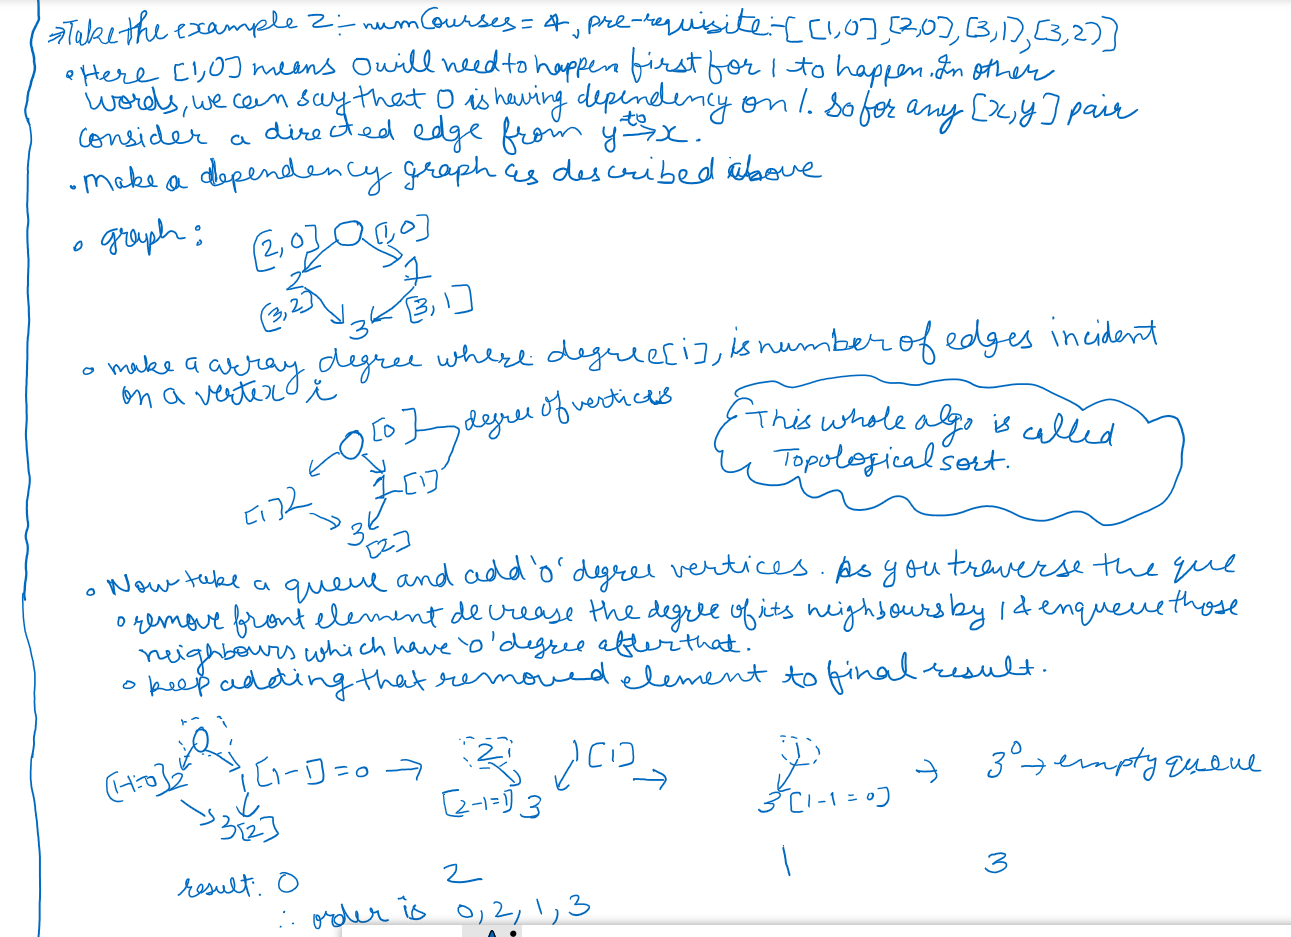 ⇒Take the example 2:- numCourses = 4, pre-requisite:-[[1,0],[2,0],[3,1],[3,2]]
• Here [1,0] means 0 will need to happen first for 1 to happen. In other
words, we can say that 0 is having dependency on 1. So for any [x,y] pair
consider a directed edge from y to→ x.
• make a dependency graph as described above
• graph:
[2,0] 0 [1,0]
2 1
[3,2] 3 [3,1]
• make a array degree where degree[i], is number of edges incident
on a vertex i
0 [0] degree of vertices
[1] 2 1 [1]
3 [2]
This whole algo is called
Topological sort.
• Now take a queue and add '0' degree vertices. As you traverse the que
• remove front element decrease the degree of its neighbours by 1 & enqueue those
neighbours which have '0' degree after that.
• keep adding that removed element to final result.
0 2 1 [1] 1 3⁰ → empty queue
[1-1=0] 2 1 [1-1]=0 → [2-1=1] 3 → 3 [1-1=0] →
3[2]
result: 0 2 1 3
∴ order is 0, 2, 1, 3